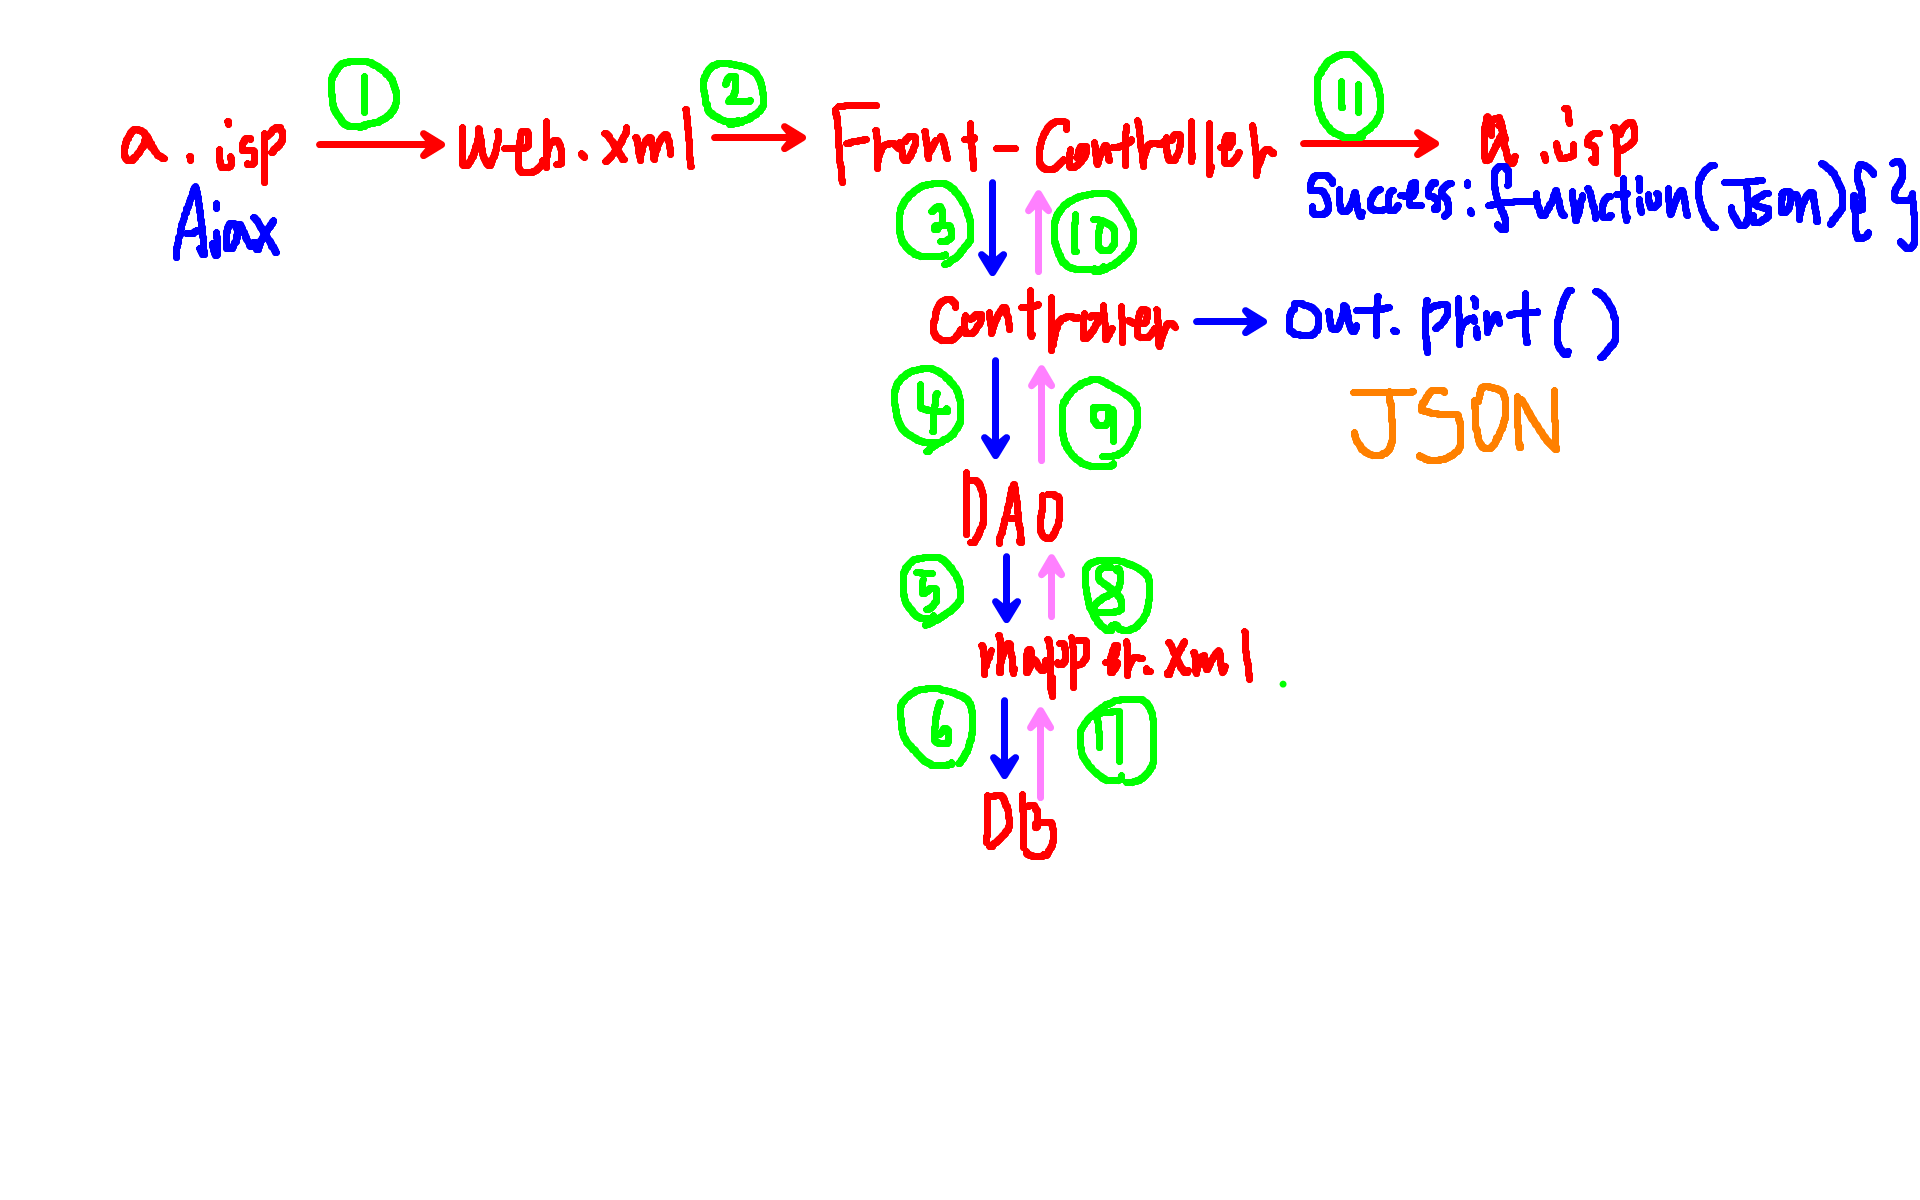 ① ② ⑪
a.jsp → web.xml → Front-Controller → a.jsp
Ajax
Success: function(Json){ }
③ ⑩
Controller → out.print()
④ ⑨
JSON
DAO
⑤ ⑧
mapper.xml
⑥ ⑦
DB